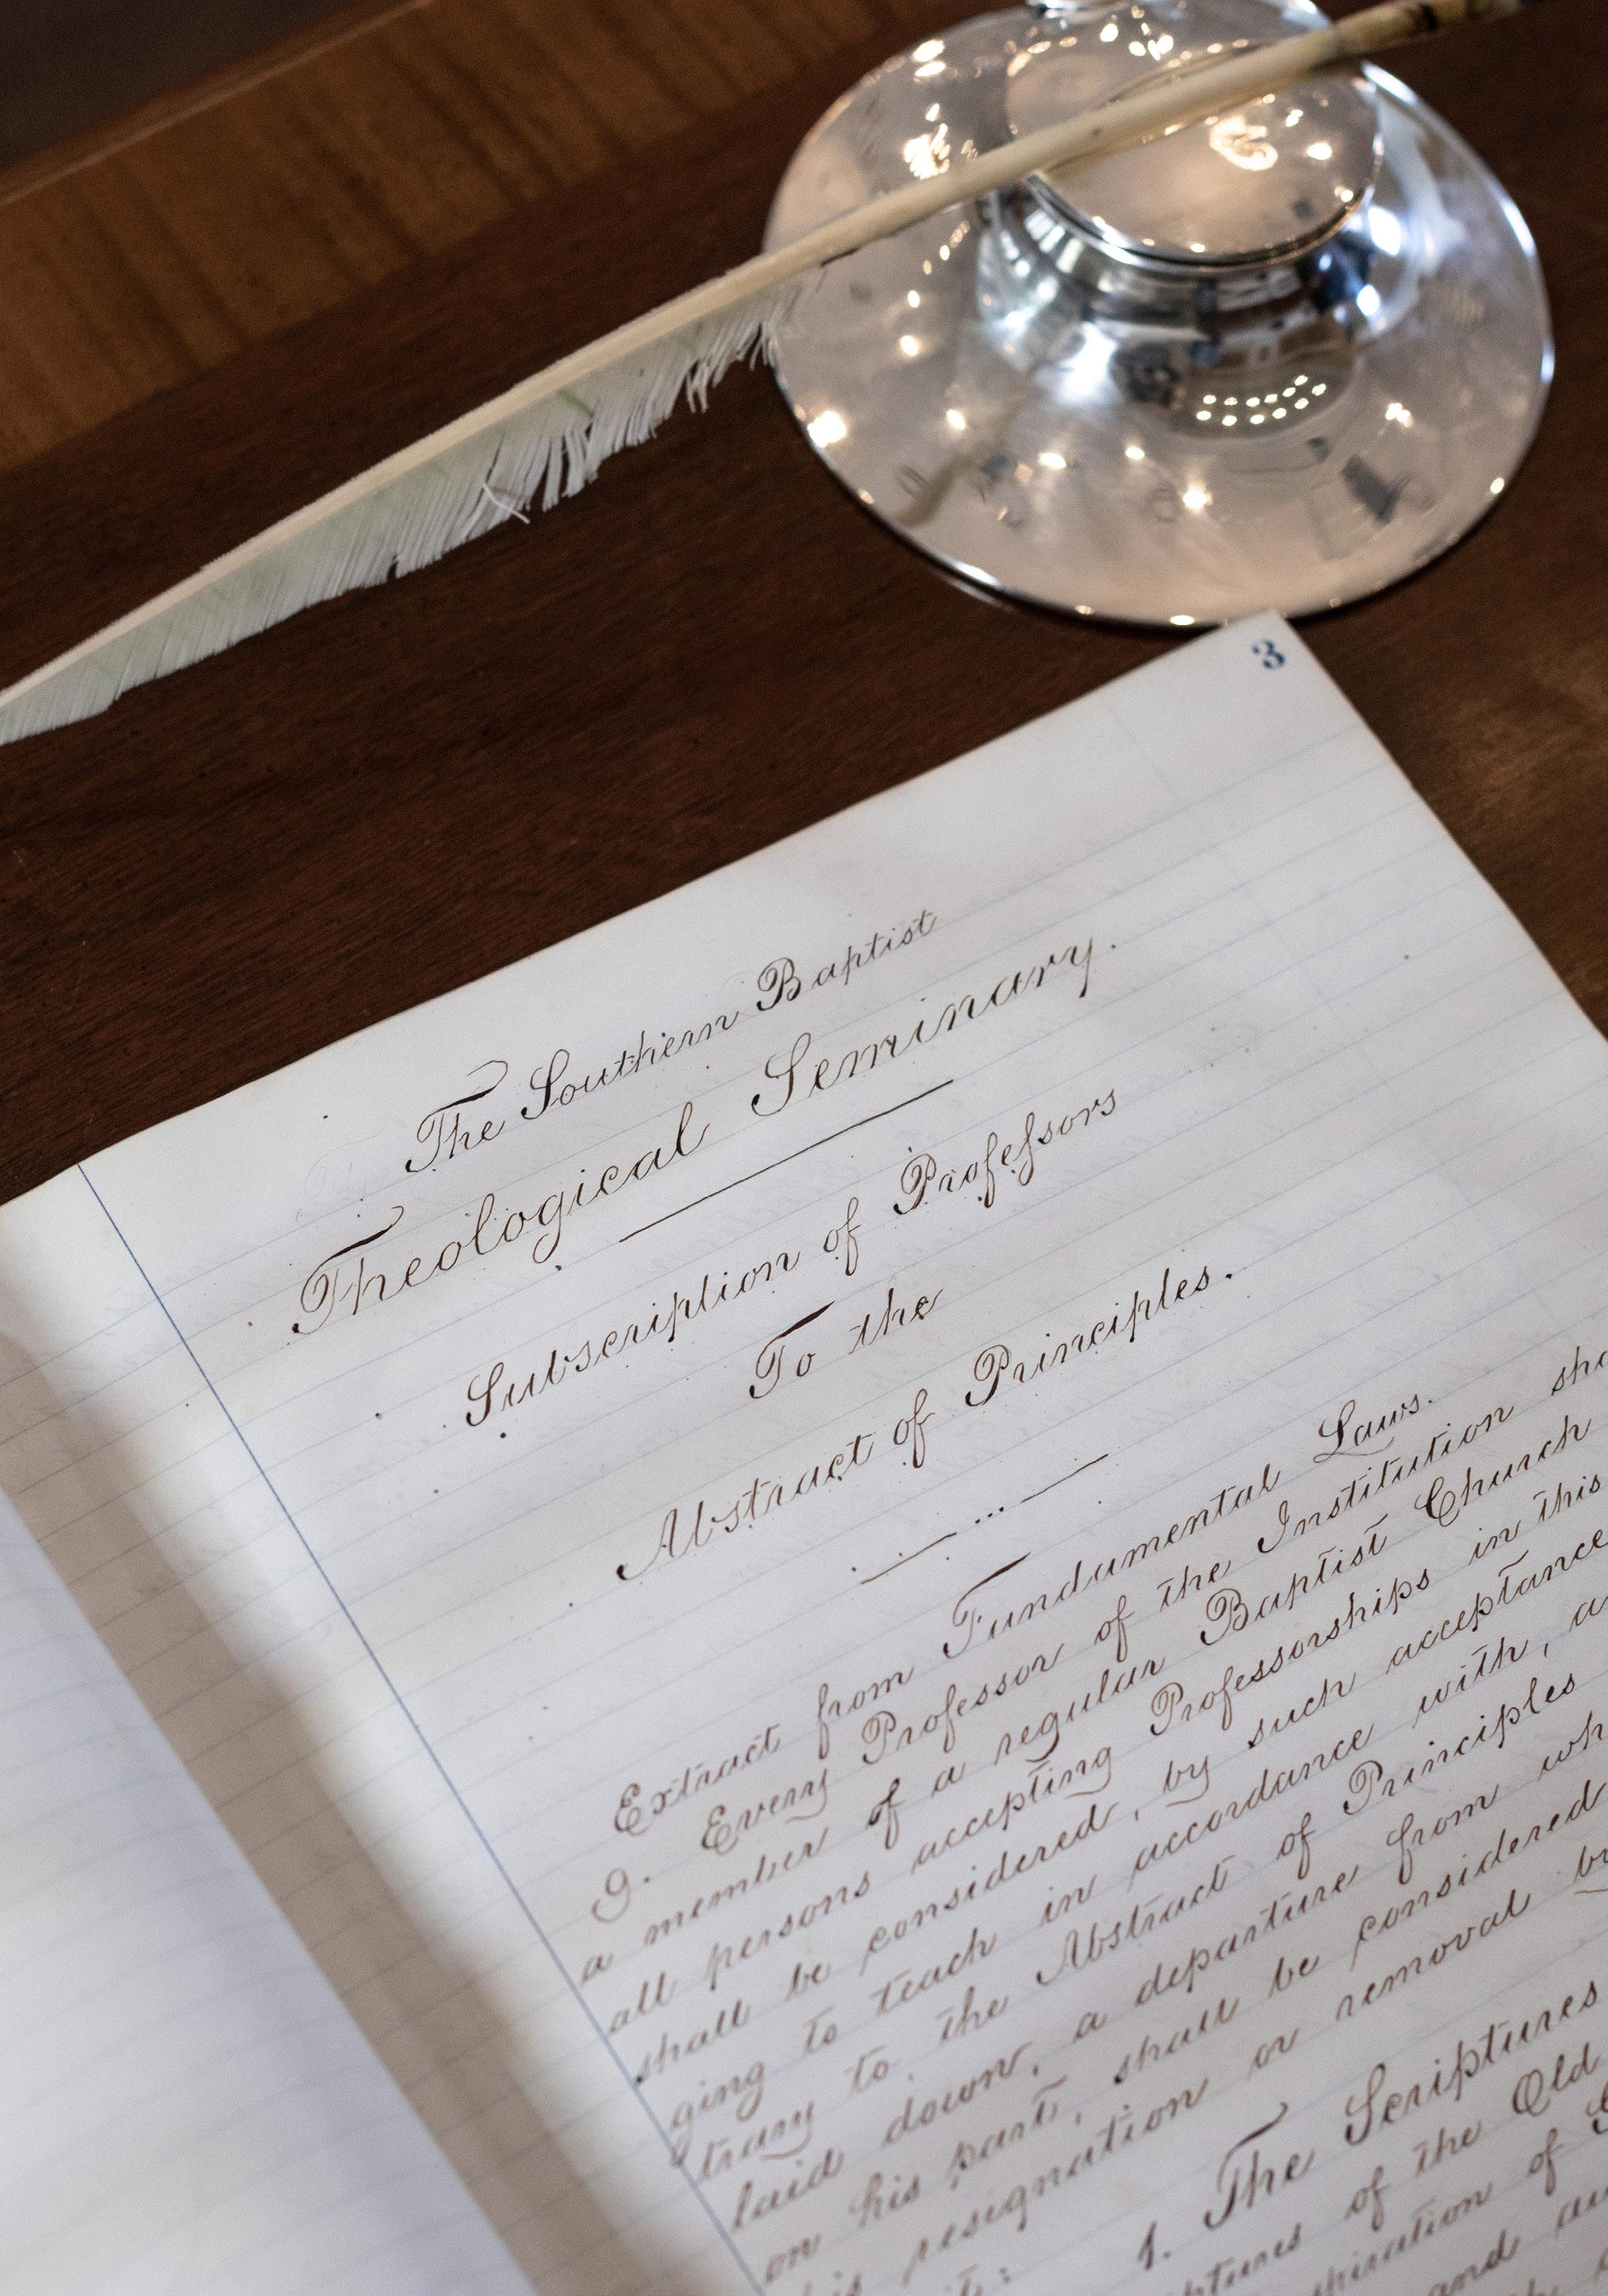 3
The Southern Baptist
Theological Seminary.
Subscription of Professors
To the
Abstract of Principles.
Extract from Fundamental Laws.
9. Every Professor of the Institution
a member of a regular Baptist Church
all persons accepting Professorships in this
shall be considered, by such acceptance
ging to teach in accordance with,
trary to, the Abstract of Principles
laid down, a departure from
on his part, shall be considered
resignation or removal
1. The Scriptures
of the Old
of
and